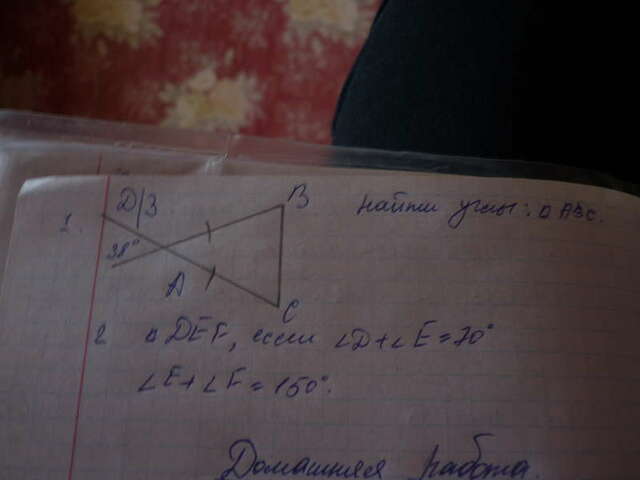 Д/З
1.
В
Найти углы: △ АВС.
38°
А
С
2 △ DEF, если ∠D+∠E=70°
∠E+∠F=150°.
Домашняя работа.